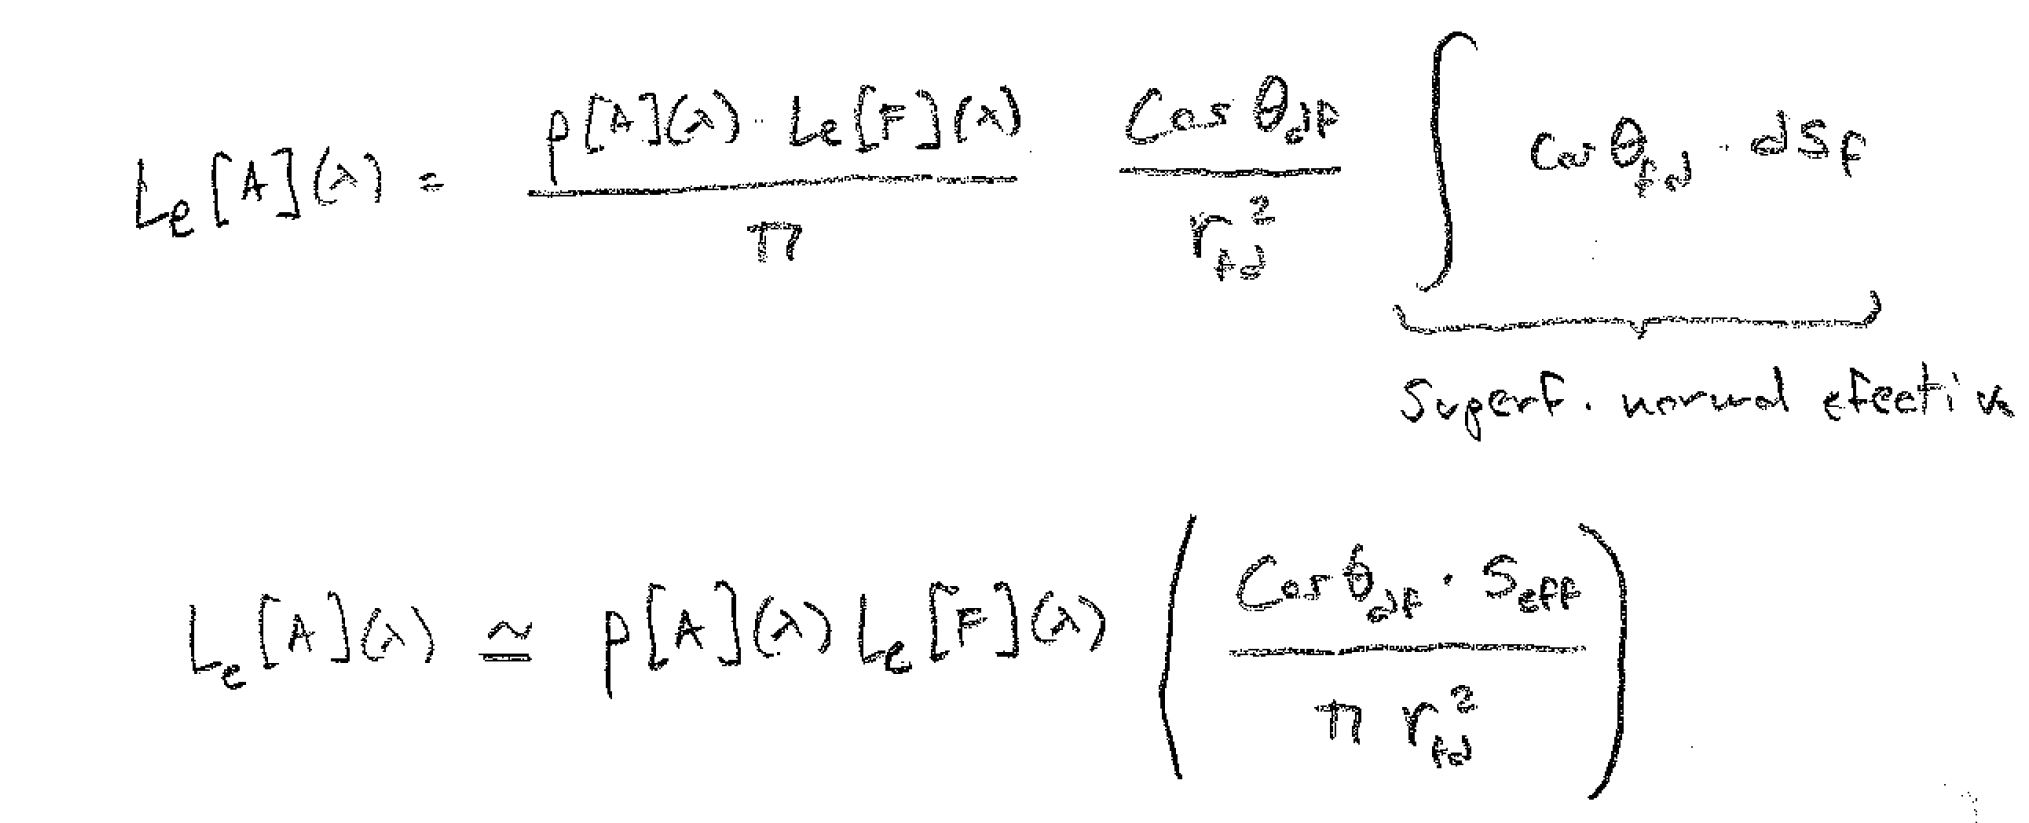 Le[A](λ) = ρ[A](λ) · Le[F](λ) / π cos θdF / rfd² ∫ cos θfd · dSF
Superf. normal efectiva
Le[A](λ) ≃ ρ[A](λ) Le[F](λ) ( cos θdF · Seff / π rfd² )